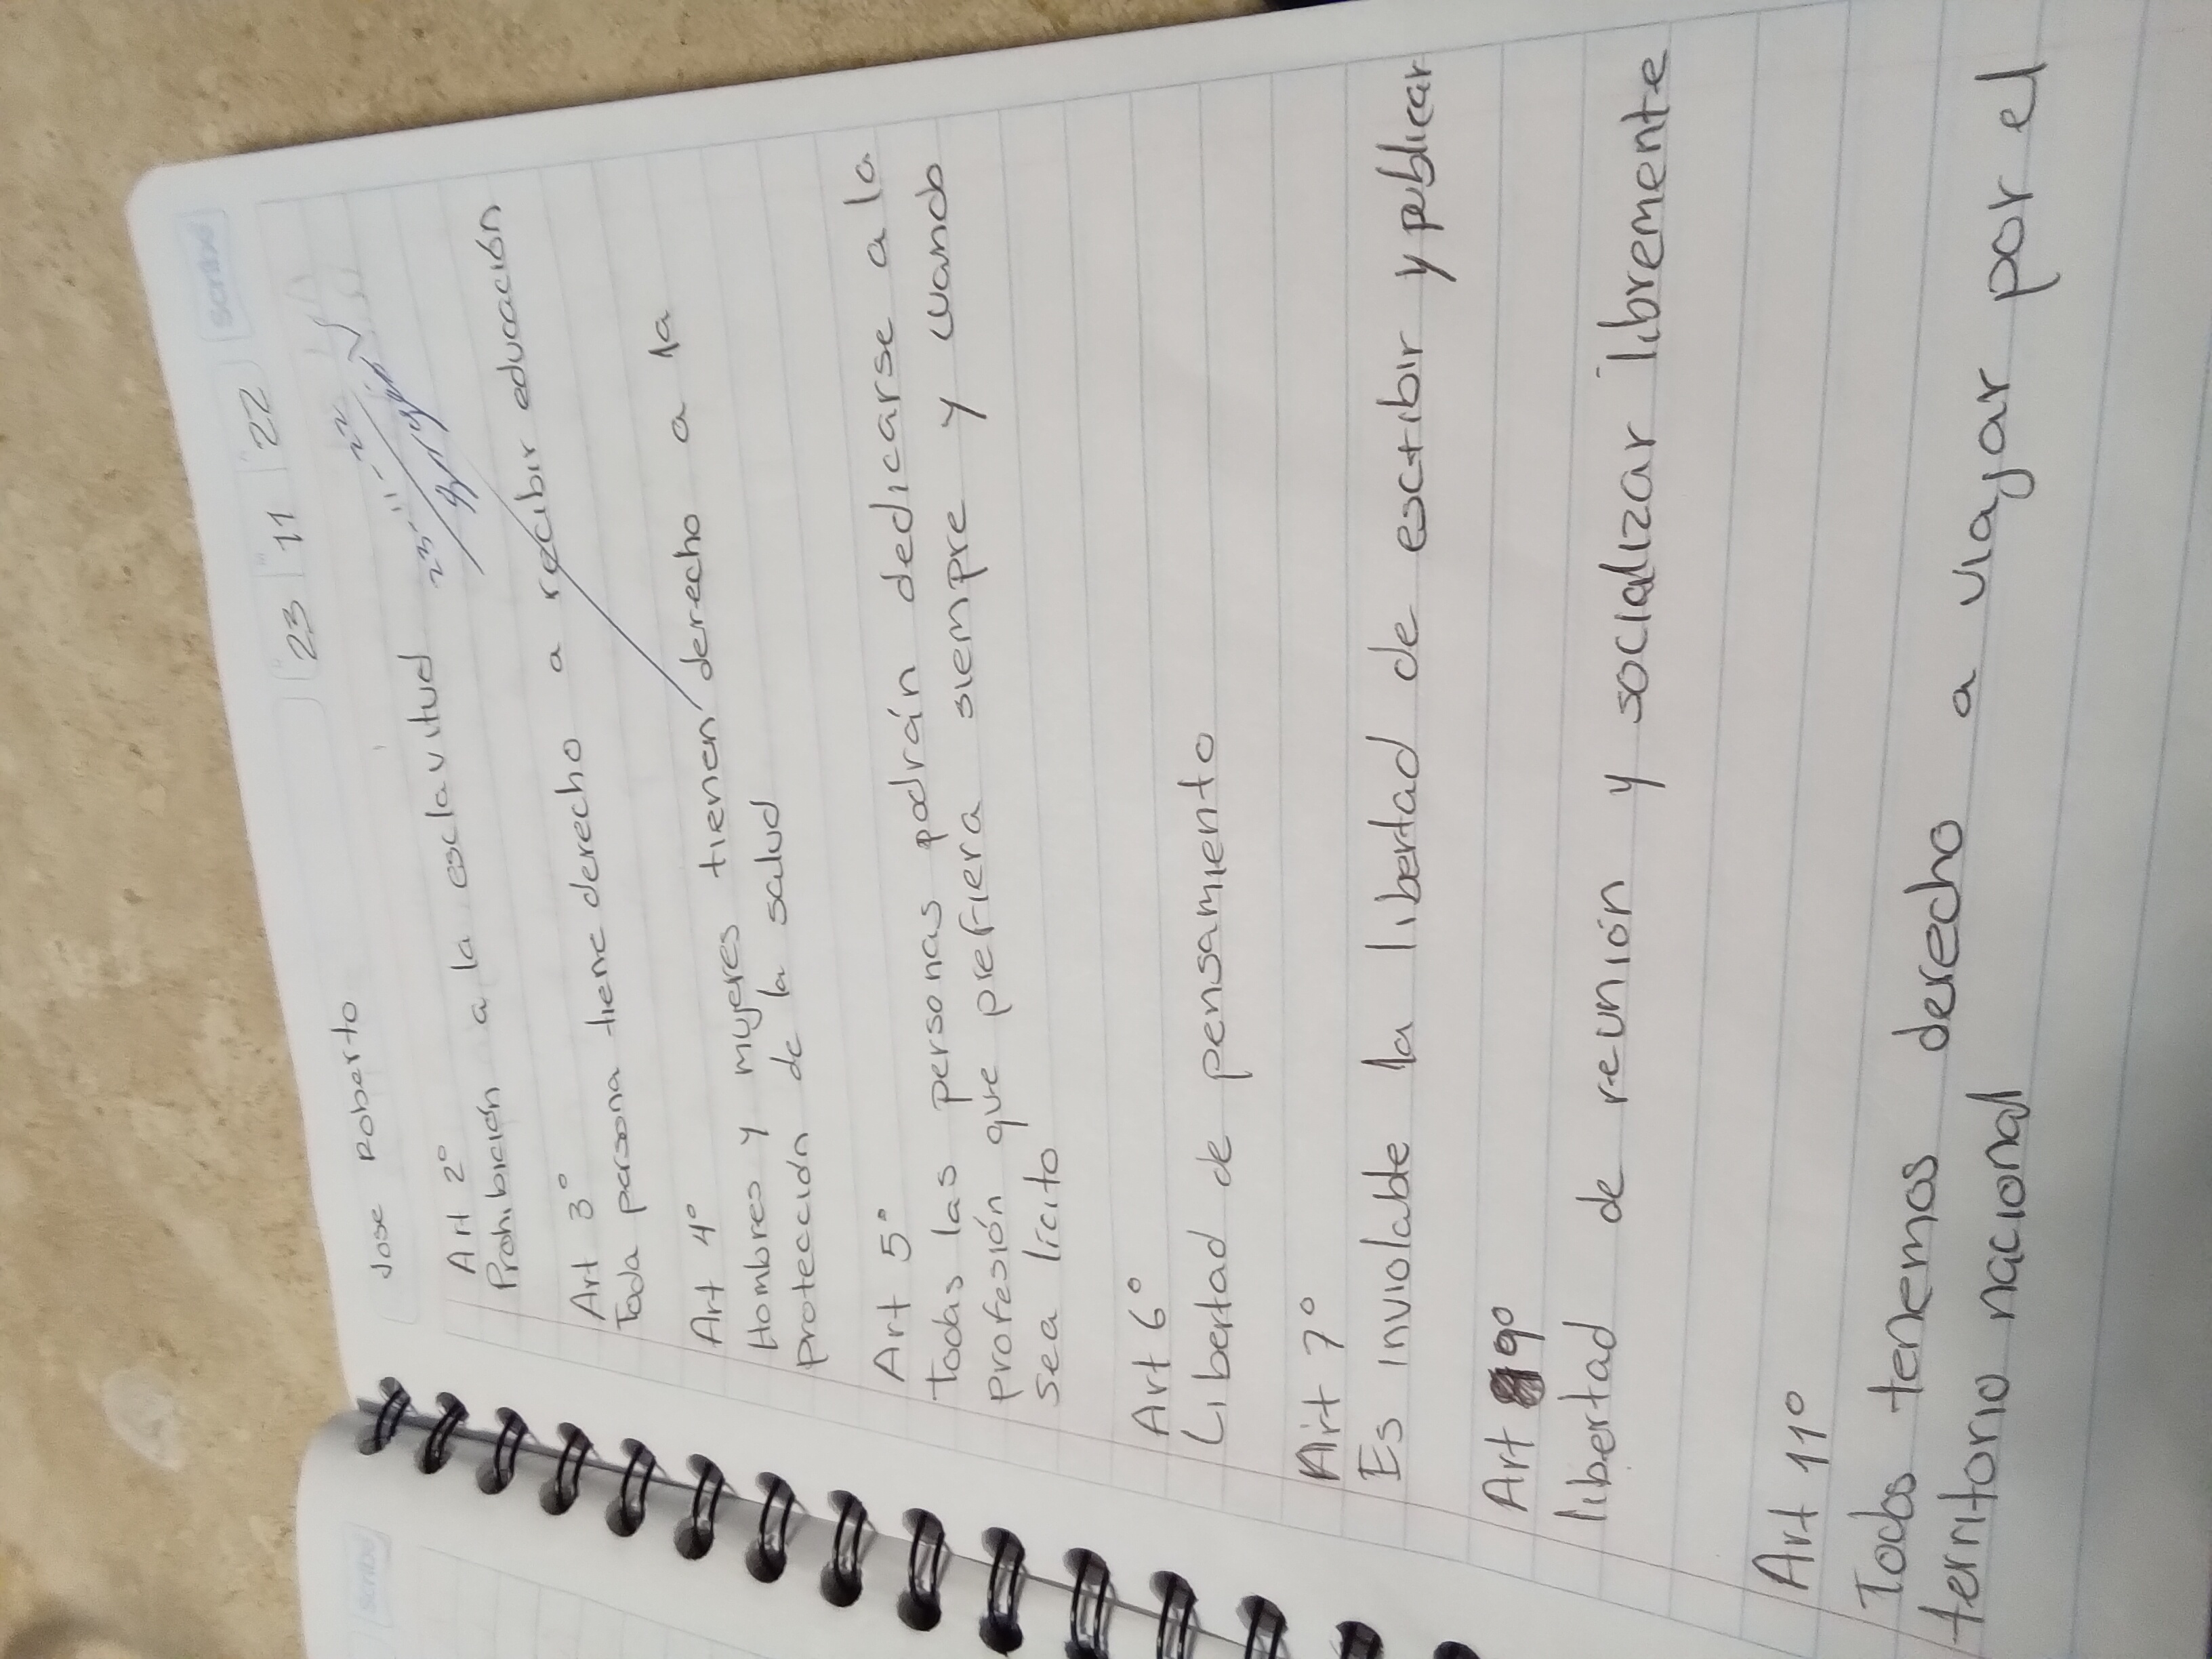 scribe
23 11 22
Jose Roberto
23-11-22
Art 2°
Prohibición a la esclavitud
Art 3°
Toda persona tiene derecho a recibir educación
Art 4°
Hombres y mujeres tienen derecho a la
protección de la salud
Art 5°
todas las personas podrán dedicarse a la
profesión que prefiera siempre y cuando
sea lícito
Art 6°
Libertad de pensamiento
Art 7°
Es inviolable la libertad de esctibir y publicar
Art 9°
libertad de reunión y socializar libremente
Art 11°
Todos tenemos derecho a viajar por el
territorio nacional
scribe